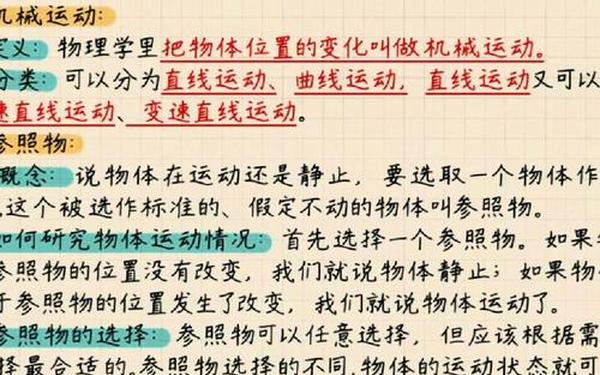 机械运动:
定义: 物理学里把物体位置的变化叫做机械运动。
分类: 可以分为直线运动、曲线运动, 直线运动又可以
速直线运动、变速直线运动。
参照物:
概念: 说物体在运动还是静止, 要选取一个物体作
,这个被选作标准的、假定不动的物体叫参照物。
如何研究物体运动情况: 首先选择一个参照物。如果物
参照物的位置没有改变, 我们就说物体静止; 如果物
于参照物的位置发生了改变, 我们就说物体运动了。
参照物的选择: 参照物可以任意选择, 但应该根据需
择最合适的。参照物选择的不同,物体的运动状态就可